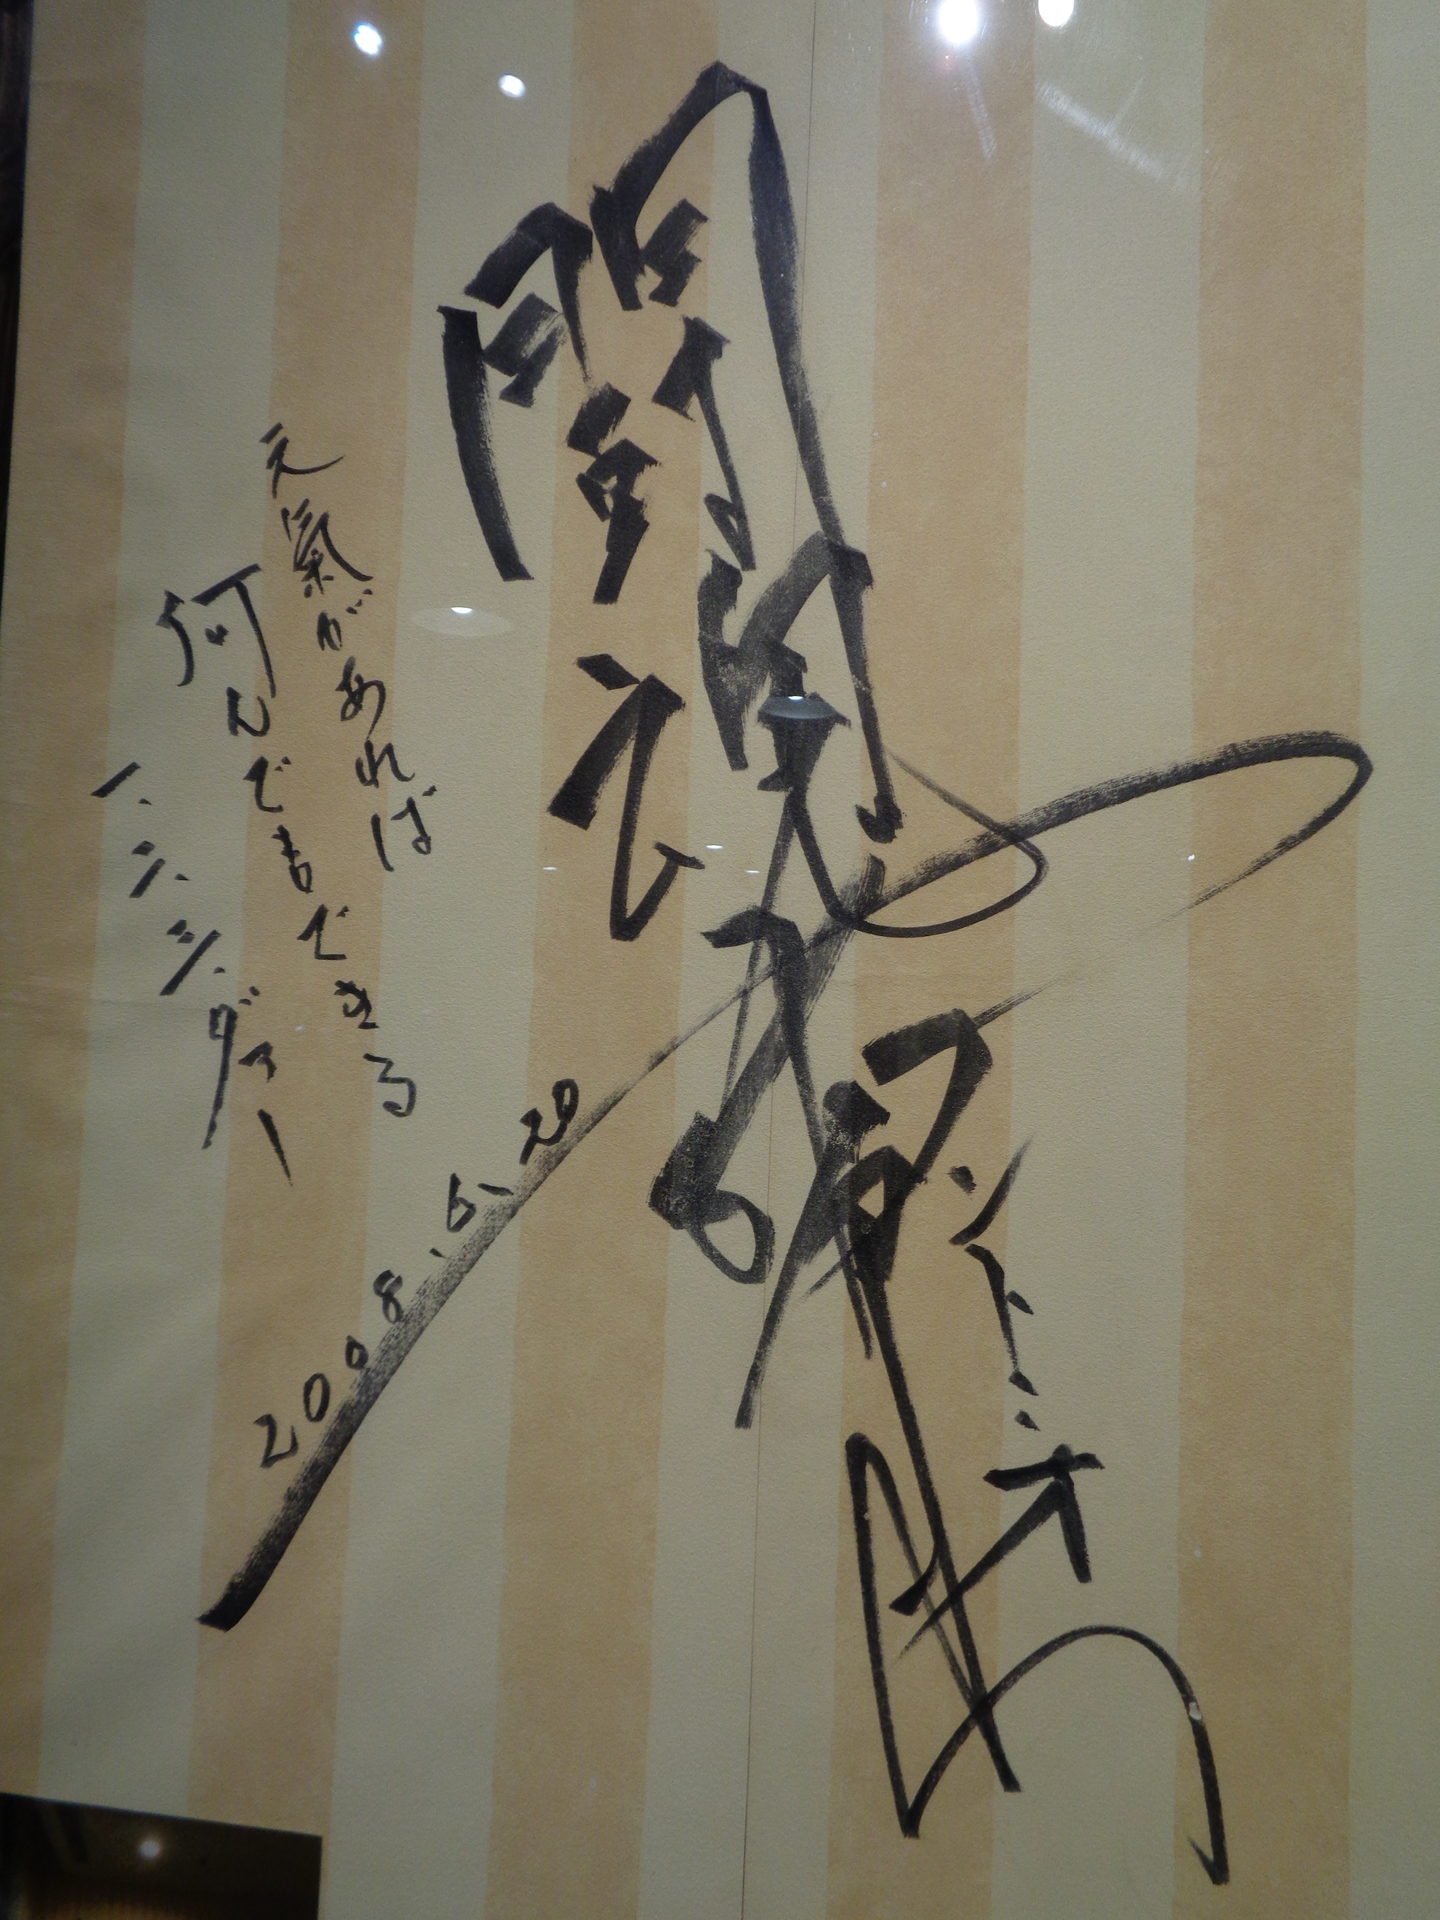 闘魂
アントニオ猪木
元氣があれば
何んでもできる
一、二、三、ダァー
2008.6.20